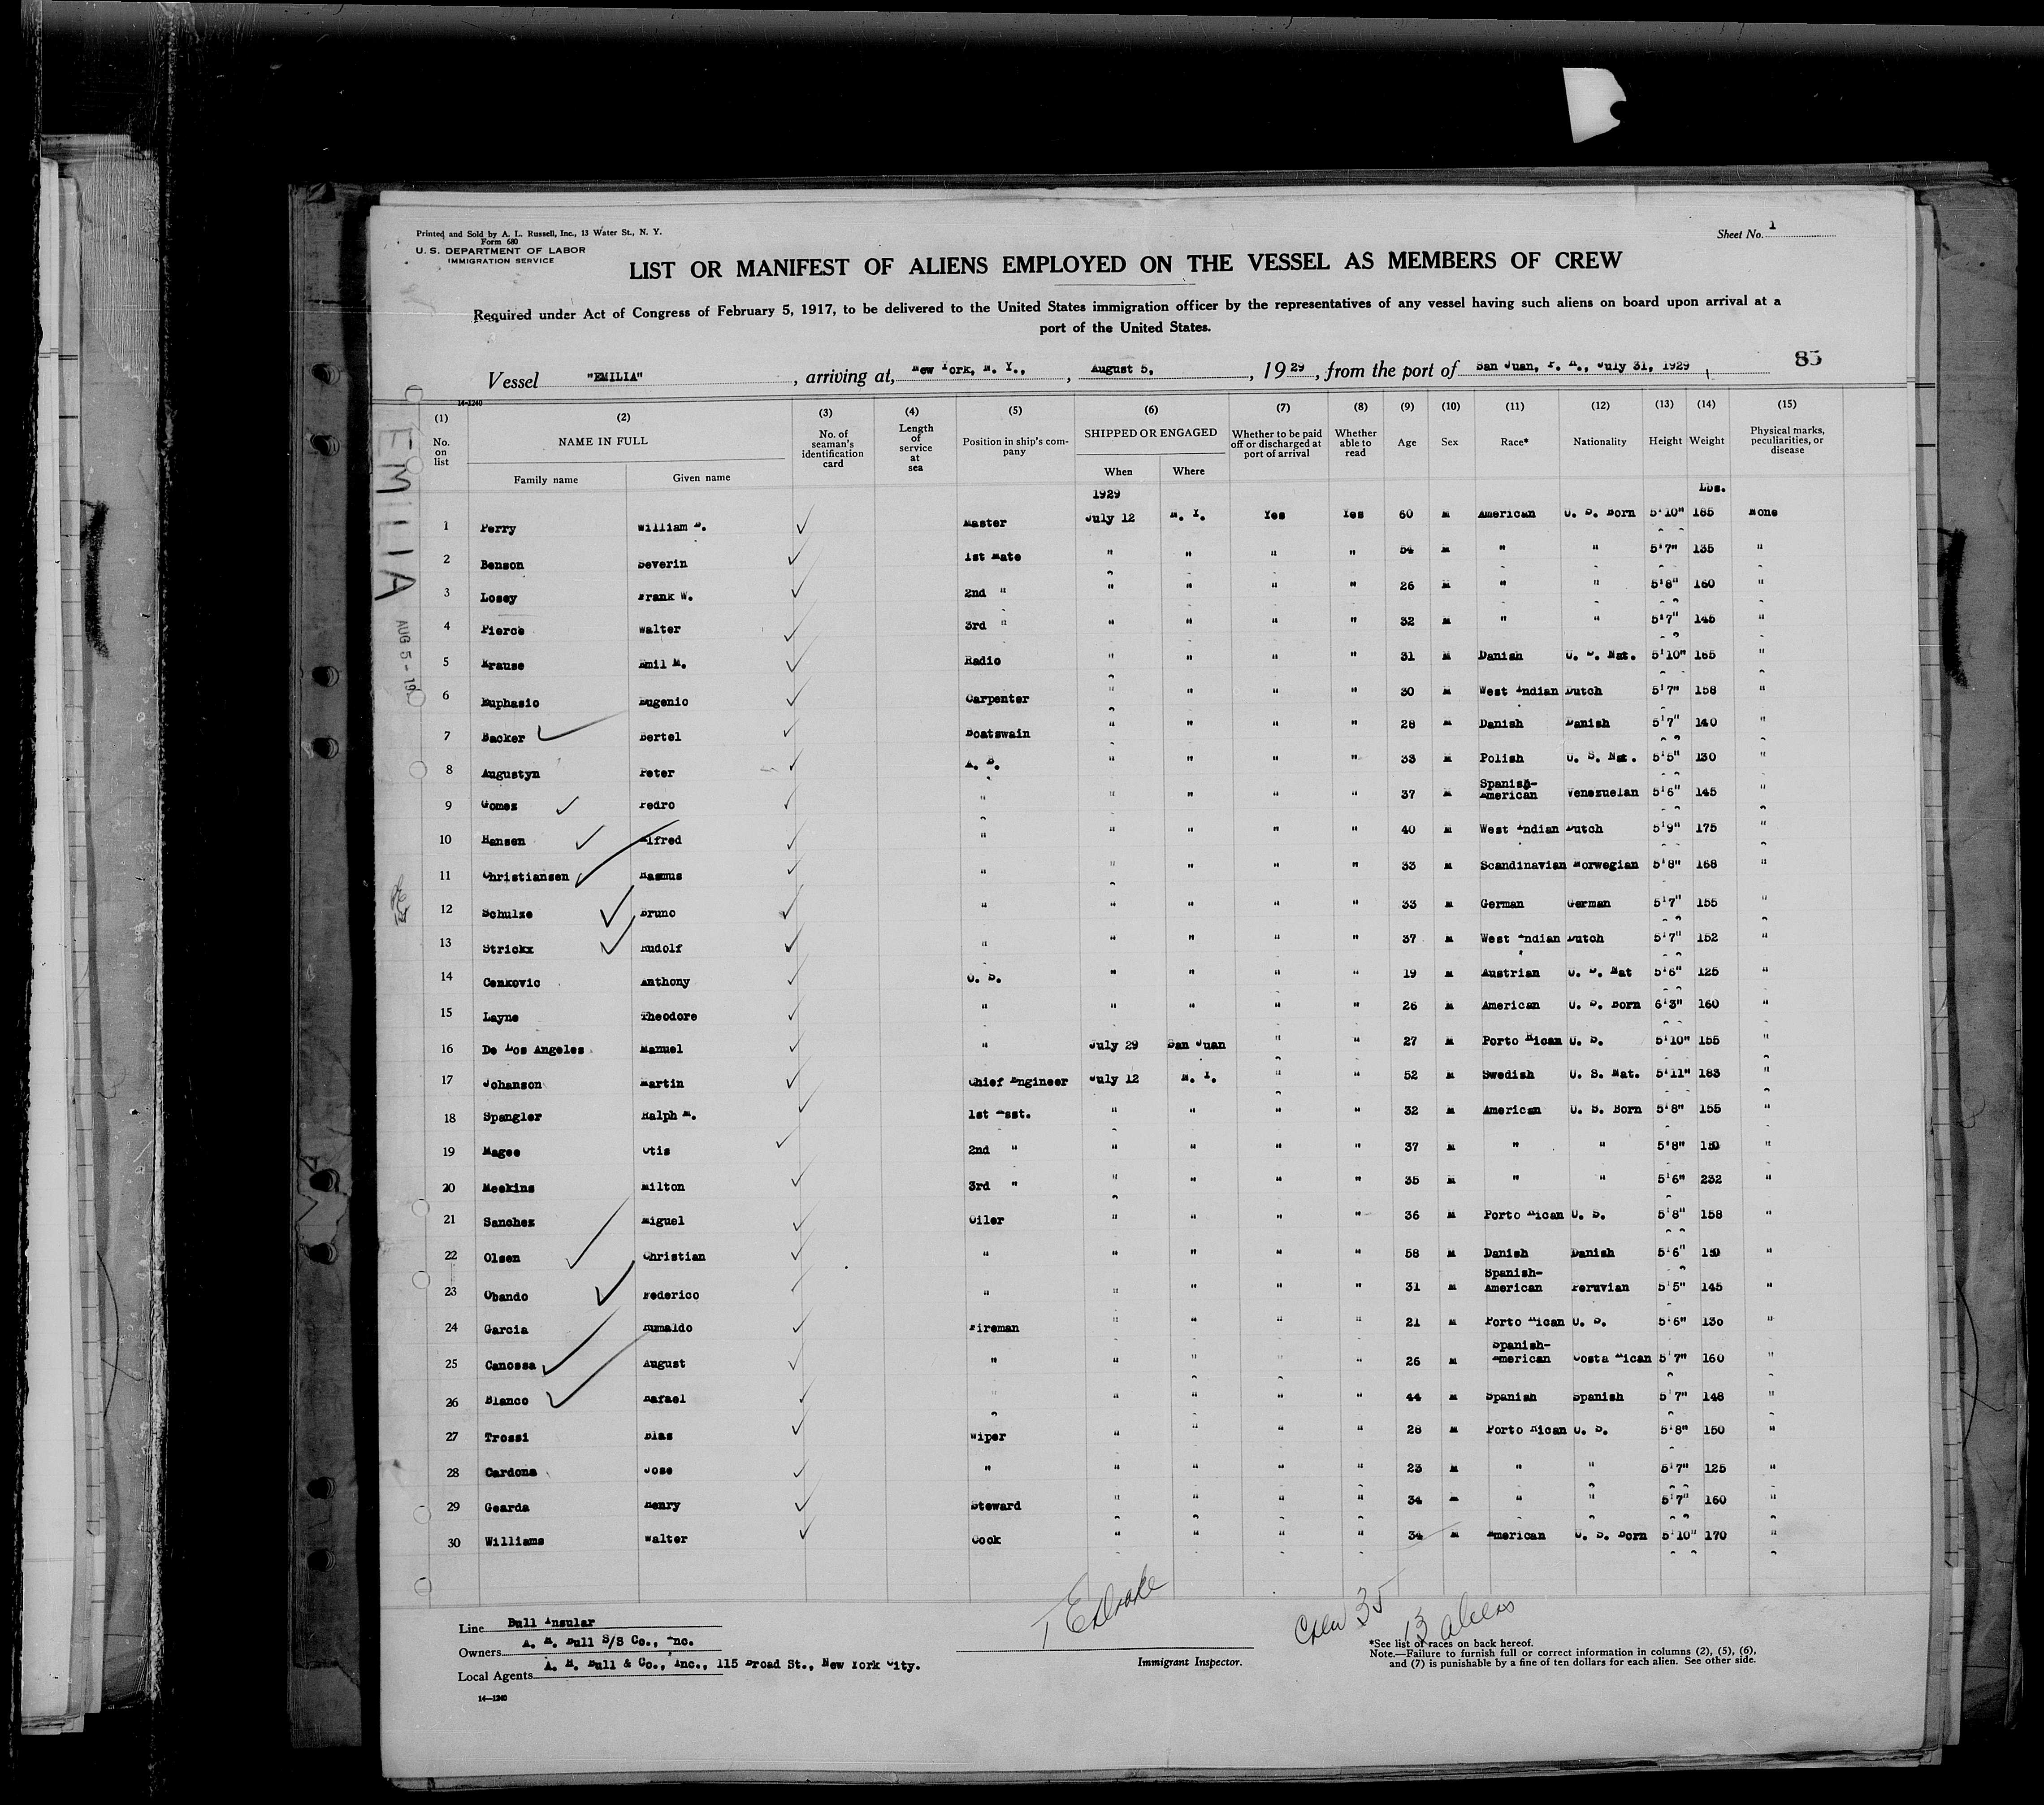 Printed and Sold by A. L. Russell, Inc., 13 Water St., N. Y.
Form 680
U. S. DEPARTMENT OF LABOR
IMMIGRATION SERVICE
Sheet No. 1
LIST OR MANIFEST OF ALIENS EMPLOYED ON THE VESSEL AS MEMBERS OF CREW
Required under Act of Congress of February 5, 1917, to be delivered to the United States immigration officer by the representatives of any vessel having such aliens on board upon arrival at a
port of the United States.
Vessel "EMILIA", arriving at, New York, N. Y., August 5, 1929, from the port of San Juan, P. R., July 31, 1929
85
14-1240
(1) (2) (3) (4) (5) (6) (7) (8) (9) (10) (11) (12) (13) (14) (15)
No. on list NAME IN FULL Family name Given name No. of seaman's identification card Length of service at sea Position in ship's company SHIPPED OR ENGAGED When Where Whether to be paid off or discharged at port of arrival Whether able to read Age Sex Race* Nationality Height Weight Physical marks, peculiarities, or disease
1929 Lbs.
1 Perry William B. Master July 12 N. Y. Yes Yes 60 M American U. S. Born 5'10" 185 None
2 Benson Severin 1st Mate " " " " 54 M " " 5'7" 135 "
3 Losey Frank W. 2nd " " " " " 26 M " " 5'8" 160 "
4 Pierce Walter 3rd " " " " " 32 M " " 5'7" 145 "
5 Krause Emil M. Radio " " " " 31 M Danish U. S. Nat. 5'10" 165 "
6 Euphasio Eugenio Carpenter " " " " 30 M West Indian Dutch 5'7" 158 "
7 Backer Bertel Boatswain " " " " 28 M Danish Danish 5'7" 140 "
8 Augustyn Peter A. B. " " " " 33 M Polish U. S. Nat. 5'5" 130 "
9 Gomez Pedro " " " " " 37 M Spanish-American Venezuelan 5'6" 145 "
10 Hansen Alfred " " " " " 40 M West Indian Dutch 5'9" 175 "
11 Christiansen Rasmus " " " " " 33 M Scandinavian Norwegian 5'8" 168 "
12 Schulze Bruno " " " " " 33 M German German 5'7" 155 "
13 Strickx Rudolf " " " " " 37 M West Indian Dutch 5'7" 152 "
14 Cenkovic Anthony O. S. " " " " 19 M Austrian U. S. Nat 5'6" 125 "
15 Layne Theodore " " " " " 26 M American U. S. Born 6'3" 160 "
16 De Los Angeles Manuel " July 29 San Juan " " 27 M Porto Rican U. S. 5'10" 155 "
17 Johanson Martin Chief Engineer July 12 N. Y. " " 52 M Swedish U. S. Nat. 5'11" 183 "
18 Spangler Ralph M. 1st Asst. " " " " 32 M American U. S. Born 5'8" 155 "
19 Magee Otis 2nd " " " " " 37 M " " 5'8" 150 "
20 Meekins Milton 3rd " " " " " 35 M " " 5'6" 232 "
21 Sanchez Miguel Oiler " " " " 36 M Porto Rican U. S. 5'8" 158 "
22 Olsen Christian " " " " " 58 M Danish Danish 5'6" 150 "
23 Obando Federico " " " " " 31 M Spanish-American Peruvian 5'5" 145 "
24 Garcia Rumaldo Fireman " " " " 21 M Porto Rican U. S. 5'6" 130 "
25 Canossa August " " " " " 26 M Spanish-American Costa Rican 5'7" 160 "
26 Blanco Rafael " " " " " 44 M Spanish Spanish 5'7" 148 "
27 Trossi Blas Wiper " " " " 28 M Porto Rican U. S. 5'8" 150 "
28 Cardona Jose " " " " " 23 M " " 5'7" 125 "
29 Gearda Henry Steward " " " " 34 M " " 5'7" 160 "
30 Williams Walter Cook " " " " 34 M American U. S. Born 5'10" 170 "
EMILIA
AUG 5 - 19
Line Bull Insular
Owners A. H. Bull S/S Co., Inc.
Local Agents A. H. Bull & Co., Inc., 115 Broad St., New York City.
14—1240
Immigrant Inspector.
Crew 35
13 aliens
*See list of races on back hereof.
Note.—Failure to furnish full or correct information in columns (2), (5), (6),
and (7) is punishable by a fine of ten dollars for each alien. See other side.